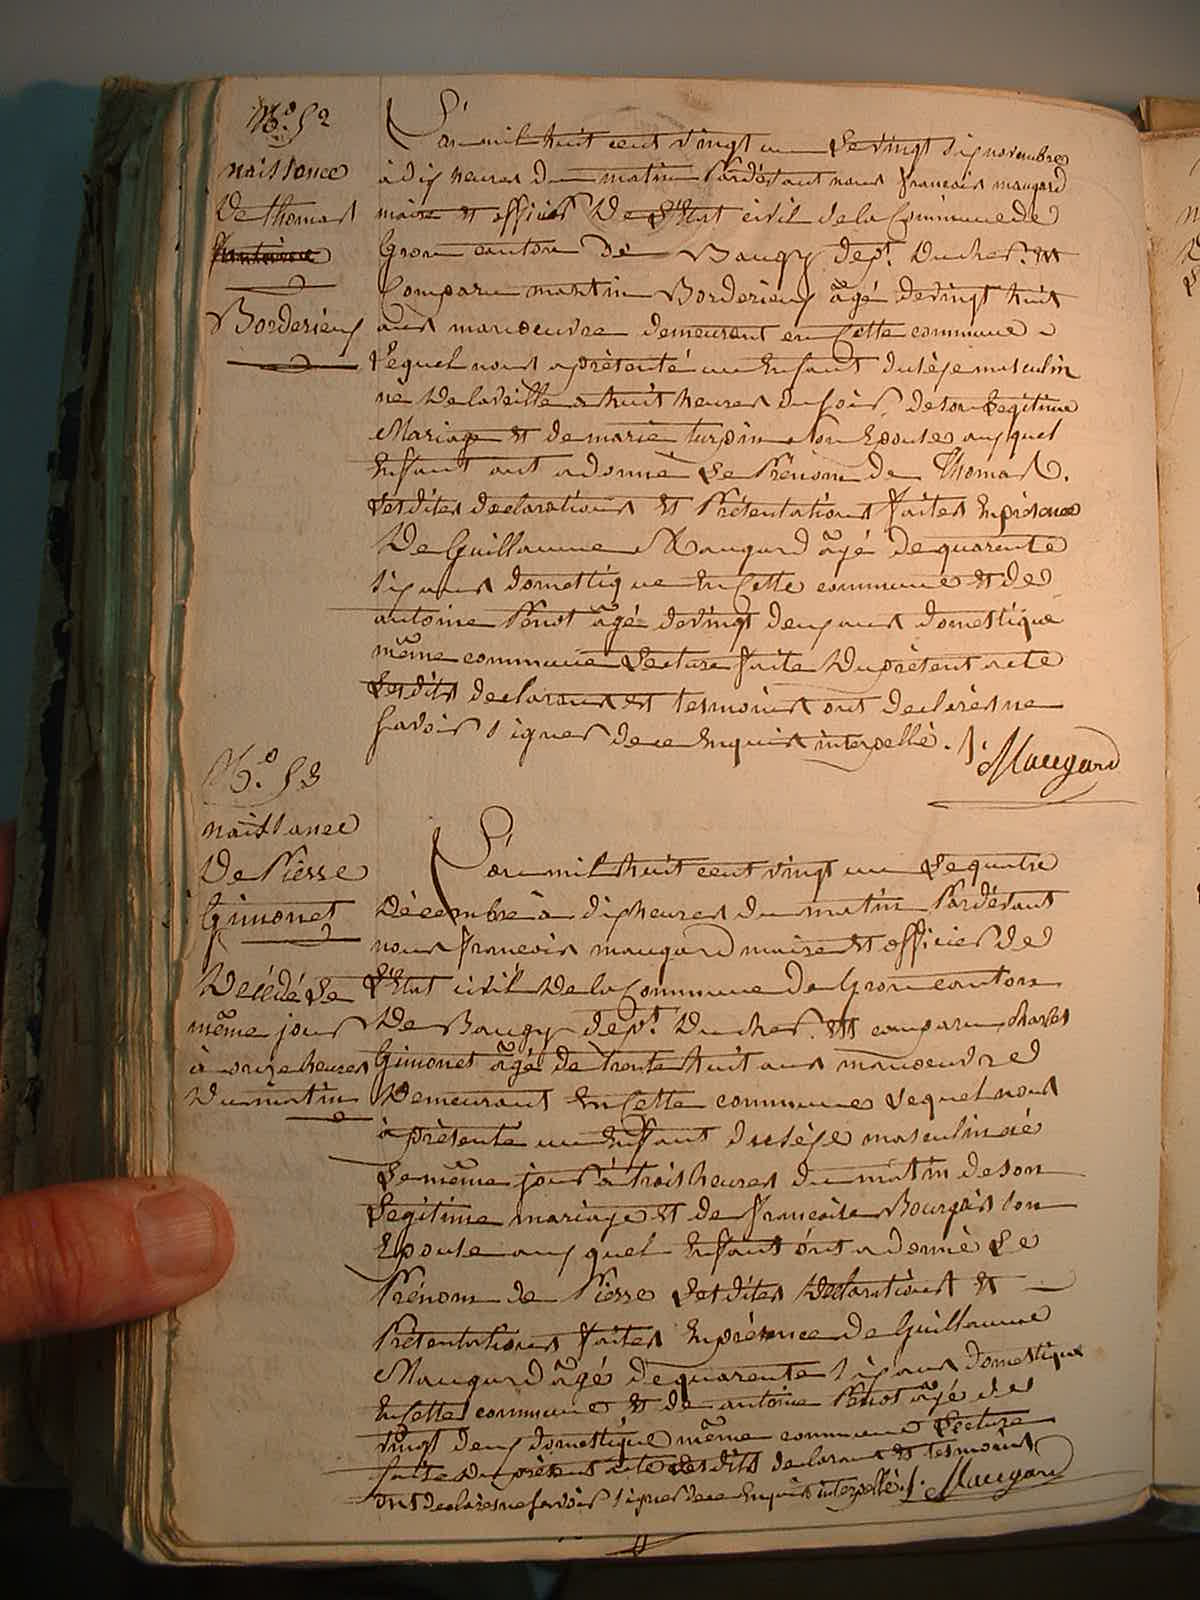 N.o 52
naissance
De thomas
Borderieux
L'an mil huit cent vingt un Le vingt six novembre
à dix heures du matin Pardevant nous francois maugard
maire et officier De L'Etat civil de la Commune de
Gron canton de Baugy dept. Ducher. est
Comparu martin Borderieux âgé devingt huit
ans manoeuvre demeurant en Cette commune
Lequel nous a présenté un Enfant du sèxe masculin
né De la veille a huit heures du soir de son Legitime
Mariage et de marie turpin son Epouse auxquel
Enfant ont a donné Le Prénom de Thomas.
Lesdites declarations et Présentations faites En présence
De Guillaume Maugard âgé de quarente
six ans domestique En Cette commune et de
antoine Penot âgé devingt deux ans domestique
même commune Lecture faite Du présent acte
Lesdits declarans et tesmoins ont declarés ne
savoir signer de ce Enquis interpellé. f. Maugard
N.o 53
naissance
De Pierre
Gimonet
Décédé Le
même jour
à onze heures
Du matin
L'an mil huit cent vingt un Le quatre
Décembre à dix heures du matin Pardevant
nous francois maugard maire et officier de
L'Etat civil De la Commune de Gron canton
De Baugy dept. Ducher. est comparu charles
Gimonet âgé de trente huit ans manoeuvre
Demeurant En Cette commune Lequel nous
à présenté un Enfant du sèxe masculin né
Le même jour à trois heures du matin de son
Legitime mariage et de francoise Bourgois son
Epouse aux quel Enfant ont a donné Le
Prénom de Pierre Lesdites Declarations et
Présentations faites En présence de Guillaume
Maugard âgé de quarente six ans domestique
En Cette commune et de antoine Penot âgé de
vingt deux domestique même commune Lecture
faite Du présent acte Lesdits declarans et tesmoins
ont declarés ne savoir signer de ce Enquis interpellé f. Maugard